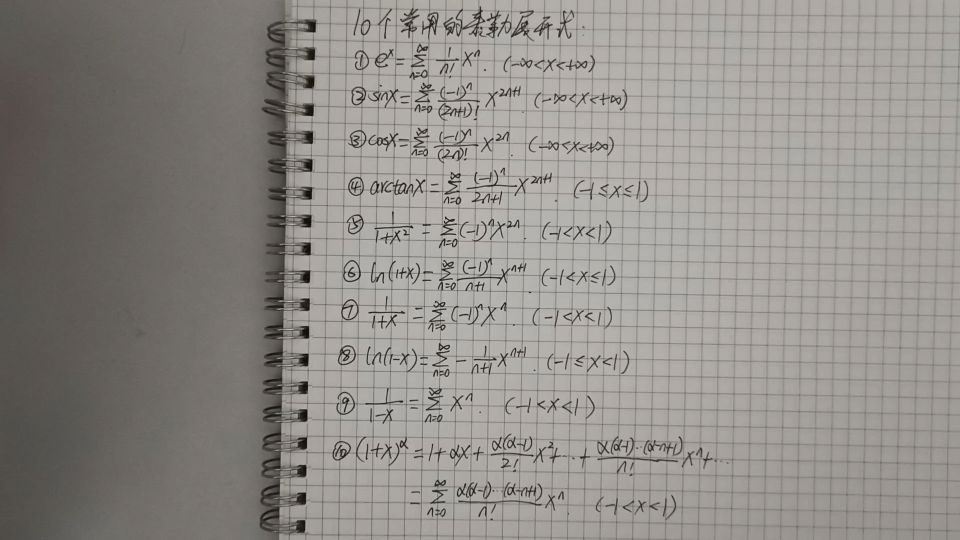 10个常用的泰勒展开式:
① e^x = ∑_{n=0}^{∞} \frac{1}{n!} x^n. (-∞<x<+∞)
② sinx = ∑_{n=0}^{∞} \frac{(-1)^n}{(2n+1)!} x^{2n+1} (-∞<x<+∞)
③ cosx = ∑_{n=0}^{∞} \frac{(-1)^n}{(2n)!} x^{2n}. (-∞<x<+∞)
④ arctanx = ∑_{n=0}^{∞} \frac{(-1)^n}{2n+1} x^{2n+1}. (-1≤x≤1)
⑤ \frac{1}{1+x^2} = ∑_{n=0}^{∞} (-1)^n x^{2n}. (-1<x<1)
⑥ ln(1+x) = ∑_{n=0}^{∞} \frac{(-1)^n}{n+1} x^{n+1}. (-1<x≤1)
⑦ \frac{1}{1+x} = ∑_{n=0}^{∞} (-1)^n x^n. (-1<x<1)
⑧ ln(1-x) = ∑_{n=0}^{∞} -\frac{1}{n+1} x^{n+1}. (-1≤x<1)
⑨ \frac{1}{1-x} = ∑_{n=0}^{∞} x^n. (-1<x<1)
⑩ (1+x)^α = 1+αx+\frac{α(α-1)}{2!}x^2+…+\frac{α(α-1)…(α-n+1)}{n!}x^n+…
= ∑_{n=0}^{∞} \frac{α(α-1)…(α-n+1)}{n!} x^n. (-1<x<1)